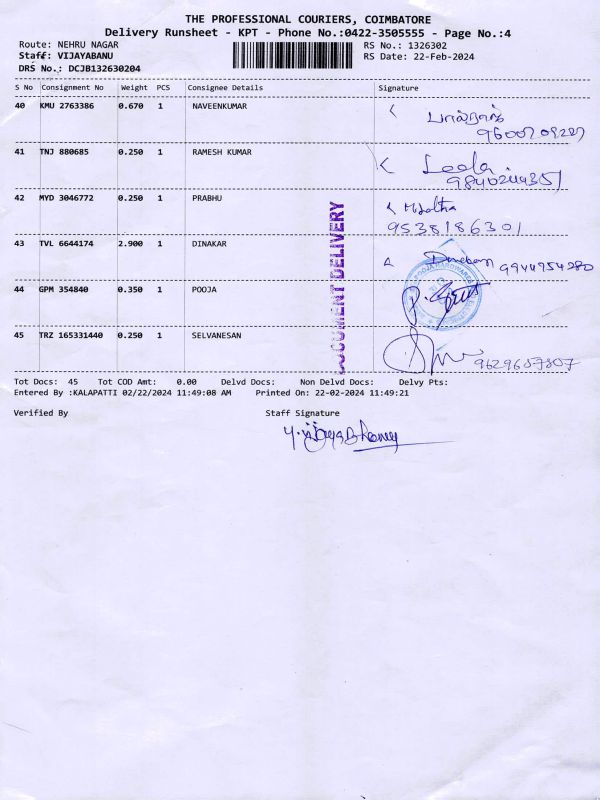 THE PROFESSIONAL COURIERS, COIMBATORE
Delivery Runsheet - KPT - Phone No.:0422-3505555 - Page No.:4
Route: NEHRU NAGAR RS No.: 1326302
Staff: VIJAYABANU RS Date: 22-Feb-2024
DRS No.: DCJB132630204
S No Consignment No Weight PCS Consignee Details Signature
40 KMU 2763386 0.670 1 NAVEENKUMAR
41 TNJ 880685 0.250 1 RAMESH KUMAR Leela
42 MYD 3046772 0.250 1 PRABHU
9538186301
43 TVL 6644174 2.900 1 DINAKAR 9944954280
44 GPM 354840 0.350 1 POOJA
45 TRZ 165331440 0.250 1 SELVANESAN
DOCUMENT DELIVERY
Tot Docs: 45 Tot COD Amt: 0.00 Delvd Docs: Non Delvd Docs: Delvy Pts:
Entered By :KALAPATTI 02/22/2024 11:49:08 AM Printed On: 22-02-2024 11:49:21
Verified By Staff Signature